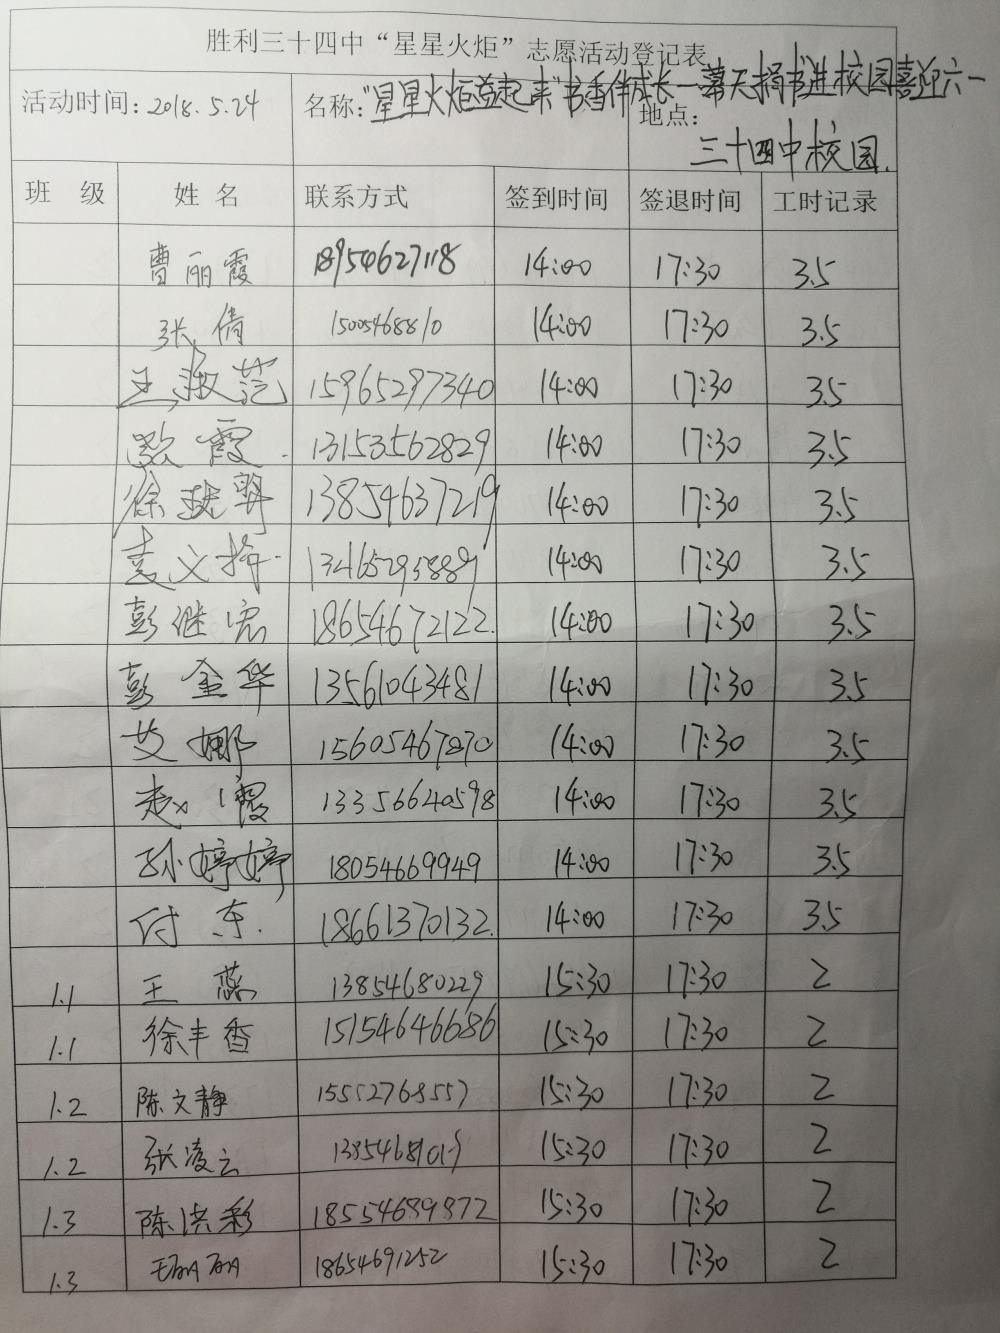 胜利三十四中“星星火炬”志愿活动登记表
活动时间: 2018.5.24 名称: “星星火炬益起来”书香伴成长——幕天捐书进校园喜迎六一
地点: 三十四中校园.
班 级 姓 名 联系方式 签到时间 签退时间 工时记录
曹丽霞 18954627118 14:00 17:30 3.5
张倩 15005468810 14:00 17:30 3.5
王淑范 15965297340 14:00 17:30 3.5
霞 13153562829 14:00 17:30 3.5
徐 13854637219 14:00 17:30 3.5
袁义 13465295889 14:00 17:30 3.5
彭继宏 18654672122. 14:00 17:30 3.5
彭金华 13561043481 14:00 17:30 3.5
艾娜 15605467870 14:00 17:30 3.5
赵小霞 13356640598 14:00 17:30 3.5
孙婷婷 18054669949 14:00 17:30 3.5
付东. 18661370132. 14:00 17:30 3.5
1.1 王蕊 13854680229 15:30 17:30 2
1.1 徐丰香 15154646686 15:30 17:30 2
1.2 陈文静 15552768557 15:30 17:30 2
1.2 张凌云 15:30 17:30 2
1.3 陈洪彩 18554689872 15:30 17:30 2
1.3 18654691252 15:30 17:30 2